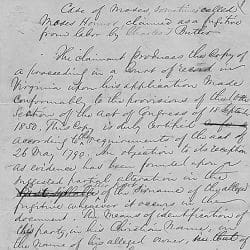 Case of Moses, sometimes called
Moses Honner, claimed as a fugitive
from labor by Charles T. Butler
The claimant produces the Copy of
a proceeding in a Court of record in
Virginia upon his application Made
Conformably to the provisions of the 10th
Section of the act of Congress of
1850. This Copy is duly certified
according to requirements of the act of
26 May 1790. An objection to its reception
as evidence has been founded upon a
suggested partial alteration in the
of the surname of the alleged
fugitive wherever it occurs in the
document. The Means of identification of
this party, in his Christian Name, in
the Name of his alleged owner,